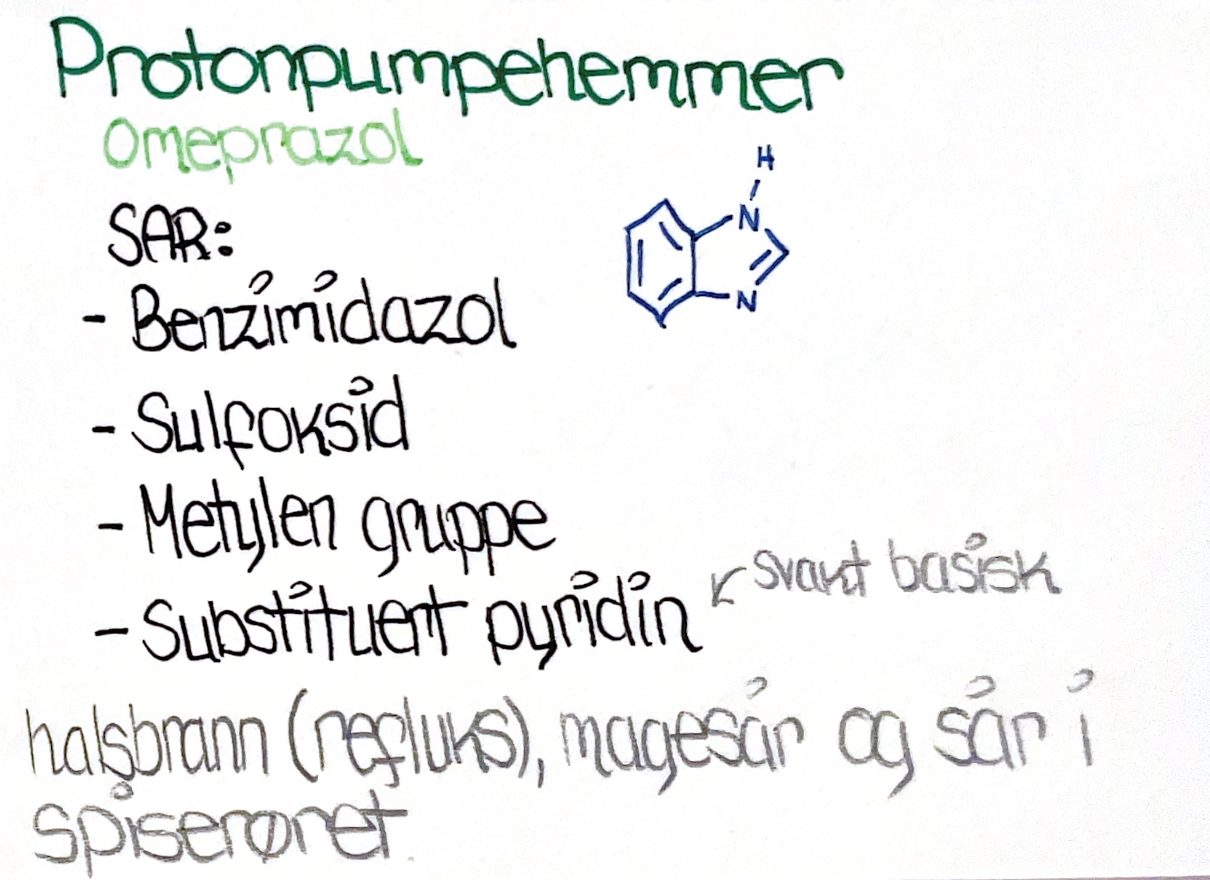 Protonpumpehemmer
Omeprazol
SAR:
- Benzimidazol
- Sulfoksid
- Metylen gruppe
- Substituert pyridin
svakt basisk
halsbrann (refluks), magesår og sår i
spiserøret
H
N
N